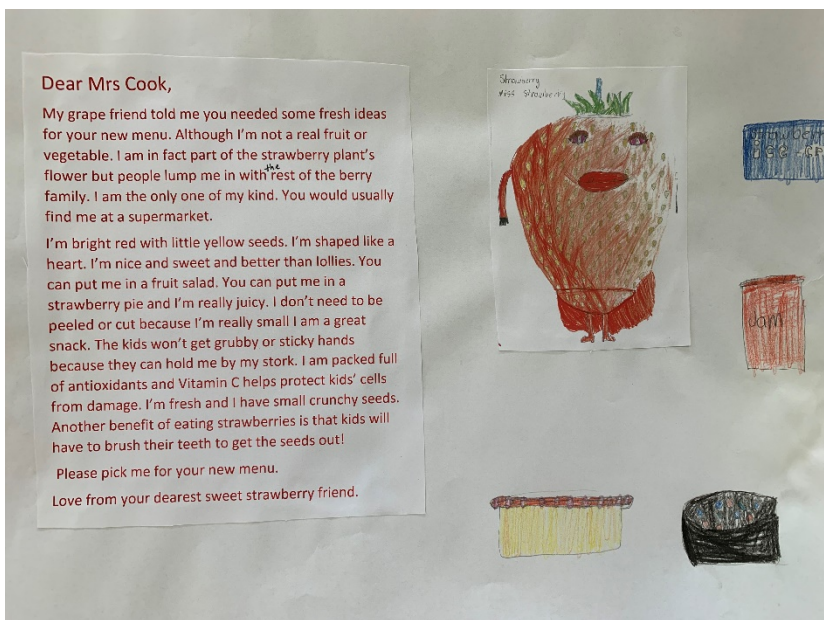 Dear Mrs Cook,
My grape friend told me you needed some fresh ideas
for your new menu. Although I'm not a real fruit or
vegetable. I am in fact part of the strawberry plant's
flower but people lump me in with the rest of the berry
family. I am the only one of my kind. You would usually
find me at a supermarket.
I'm bright red with little yellow seeds. I'm shaped like a
heart. I'm nice and sweet and better than lollies. You
can put me in a fruit salad. You can put me in a
strawberry pie and I'm really juicy. I don't need to be
peeled or cut because I'm really small I am a great
snack. The kids won't get grubby or sticky hands
because they can hold me by my stork. I am packed full
of antioxidants and Vitamin C helps protect kids' cells
from damage. I'm fresh and I have small crunchy seeds.
Another benefit of eating strawberries is that kids will
have to brush their teeth to get the seeds out!
Please pick me for your new menu.
Love from your dearest sweet strawberry friend.
Strawberry
Miss Strawberry
Jam